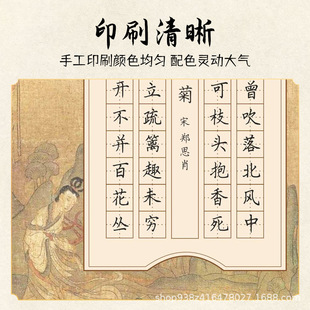 印刷清晰
手工印刷颜色均匀 配色灵动大气
曾吹落北风中
可枝头抱香死
菊 宋 郑思肖
立疏篱趣未穷
开不并百花丛
shop938z416478027.1688.com